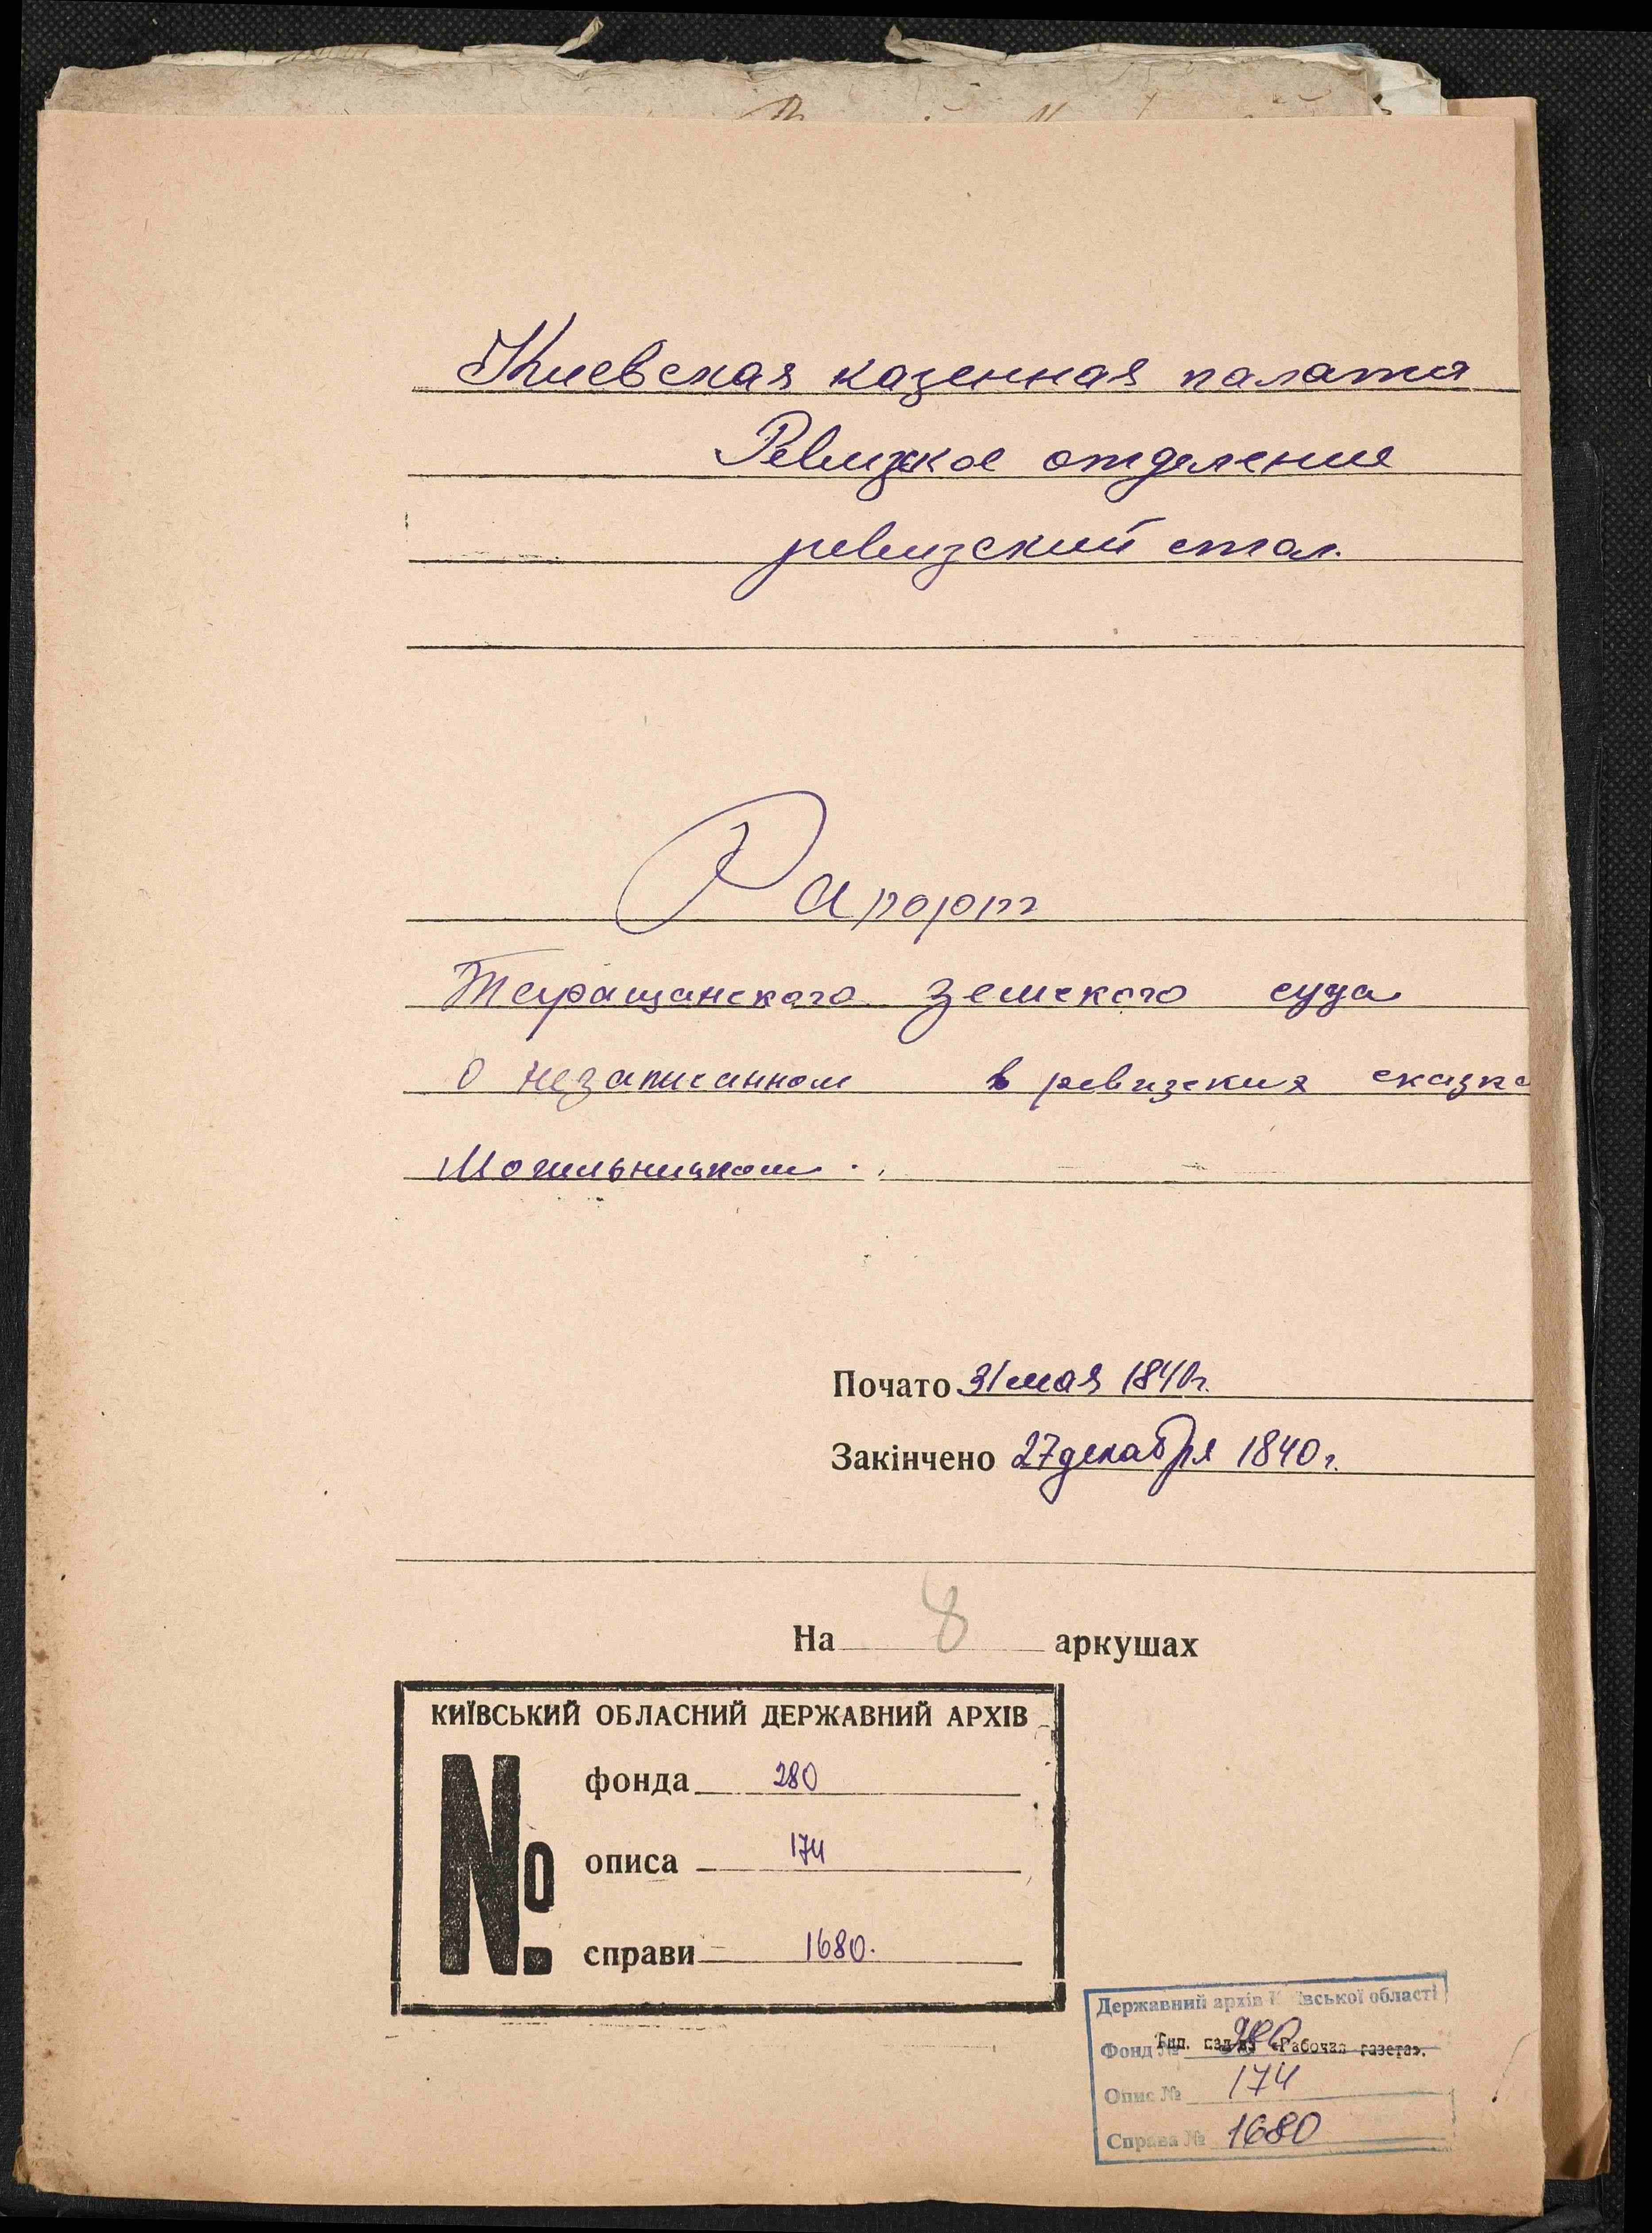 Киевская казенная палата
Ревизкое отделение
ревизский стол.
Рапорт
Таращанского земского суда
о незаписанном в ревизския сказк
Могильницком.
Почато 31 мая 1840г.
Закінчено 27 декабря 1840г.
На 8 аркушах
КИЇВСЬКИЙ ОБЛАСНИЙ ДЕРЖАВНИЙ АРХІВ
№
фонда 280
описа 174
справи 1680.
Державний архів Київської області
Фонд № 280
Тип. изд-ва «Рабочая газета».
Опис № 174
Справа № 1680